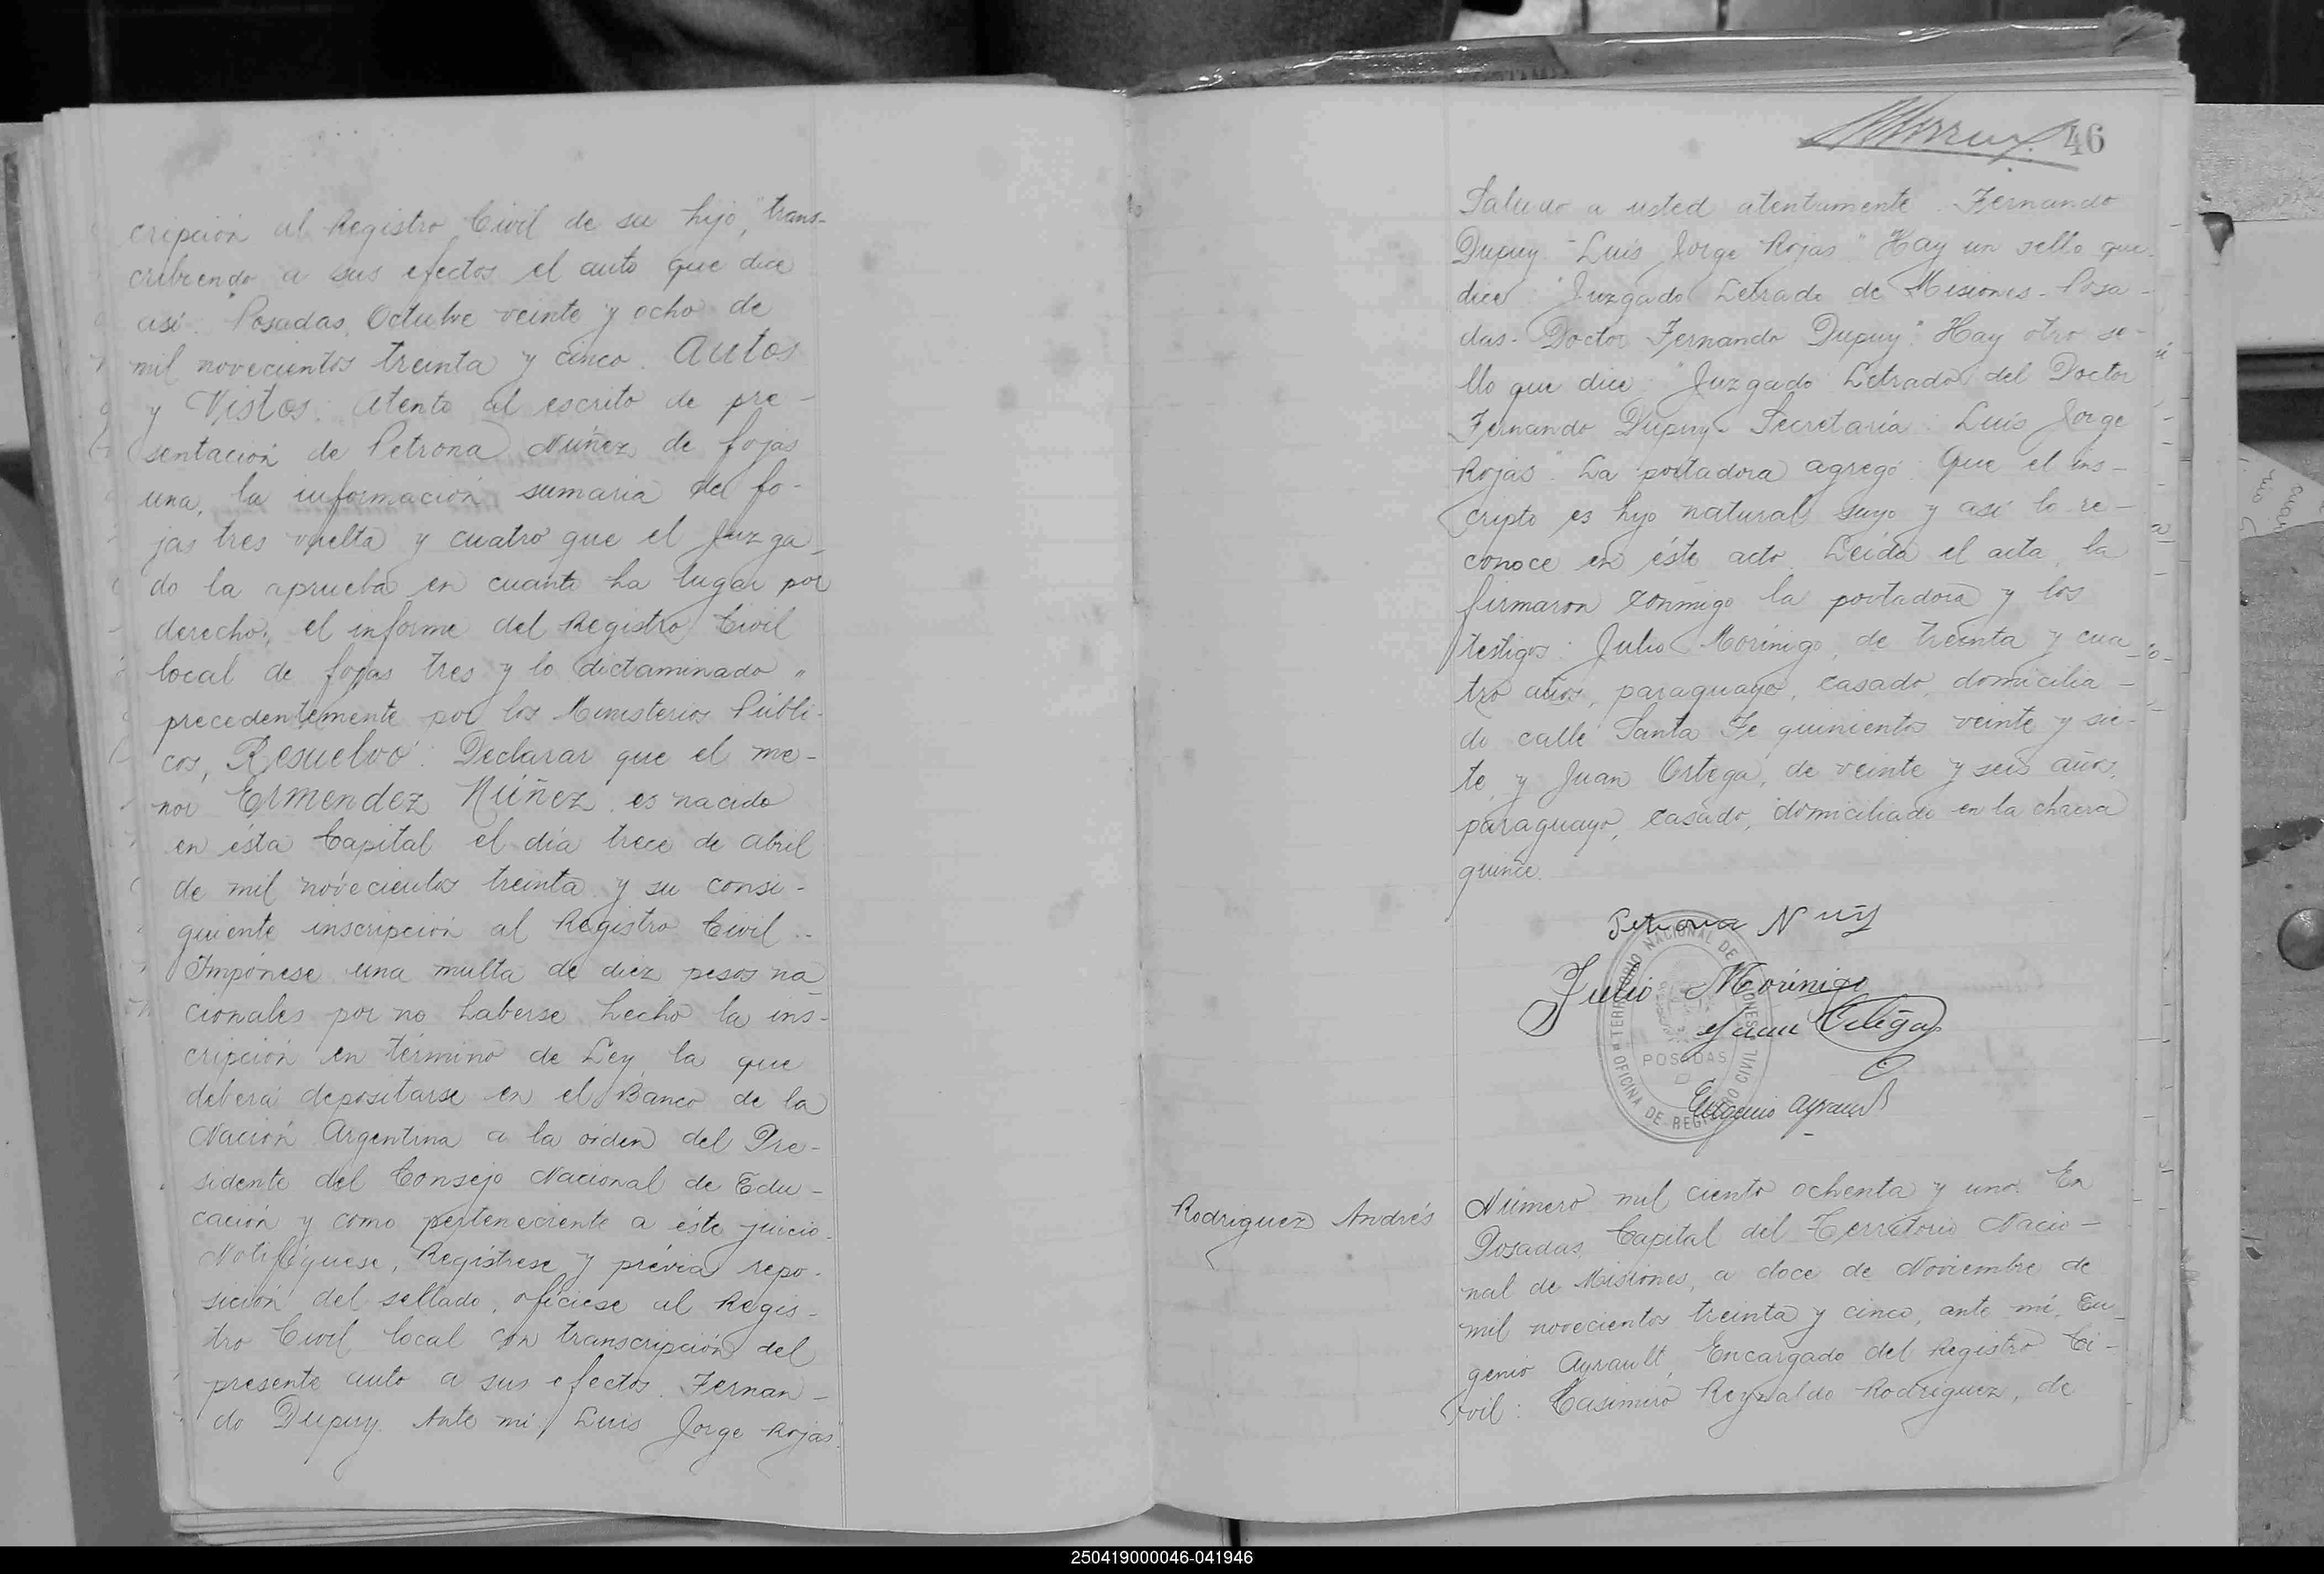 cripción al Registro Civil de su hijo, "trans-
cribiendo a sus efectos el auto que dice
así: "Posadas, Octubre veinte y ocho de
mil novecientos treinta y cinco. Autos
y Vistos: Atento al escrito de pre-
sentación de Petrona Núñez de fojas
una, la información sumaria de fo-
jas tres vuelta y cuatro que el Juzga-
do la aprueba en cuanto ha lugar por
derecho, el informe del Registro Civil
local de fojas tres y lo dictaminado "
precedentemente por los Ministerios Públi-
cos, Resuelvo: Declarar que el me-
nor Ermendez Núñez es nacido
en ésta Capital el día trece de abril
de mil novecientos treinta y su consi-
guiente inscripción al Registro Civil..
Impónese una multa de diez pesos na-
cionales por no haberse hecho la ins-
cripción en término de Ley, la que
deberá depositarse en el Banco de la
Nación Argentina a la orden del Pre-
sidente del Consejo Nacional de Edu-
cación y como perteneciente a éste juicio.
Notifíquese, Regístrese y prévia repo-
sición del sellado, ofíciese al Regis-
tro Civil local con transcripción del
presente auto a sus efectos. Fernan-
do Dupuy. Ante mí, Luis Jorge Rojas".
46
Saludo a usted atentamente. Fernando
Dupuy - Luis Jorge Rojas" Hay un sello que
dice: "Juzgado Letrado de Misiones - Posa-
das - Doctor Fernando Dupuy". Hay otro se-
llo que dice: "Juzgado Letrado del Doctor
Fernando Dupuy. Secretaría: Luis Jorge
Rojas". La portadora agregó: Que el ins-
cripto es hijo natural suyo y así lo re-
conoce en éste acto. Leída el acta, la
firmaron conmigo la portadora y los
testigos: Julio Morínigo, de treinta y cua-
tro años, paraguayo, casado, domicilia-
do calle Santa Fé quinientos veinte y sie-
te, y Juan Ortega, de veinte y seis años,
paraguayo, casado, domiciliado en la chacra
quince.
Petrona
Julio Morinigo
Juan Ortega
Eugenio Ayrault
TERRITORIO NACIONAL DE MISIONES
POSADAS
OFICINA DE REGISTRO CIVIL
Rodriguez Andrés
Número mil ciento ochenta y uno. En
Posadas, Capital del Territorio Nacio-
nal de Misiones, a doce de Noviembre de
mil novecientos treinta y cinco, ante mí, Eu-
genio Ayrault, Encargado del Registro Ci-
vil: Casimiro Reynaldo Rodriguez, de
250419000046-041946